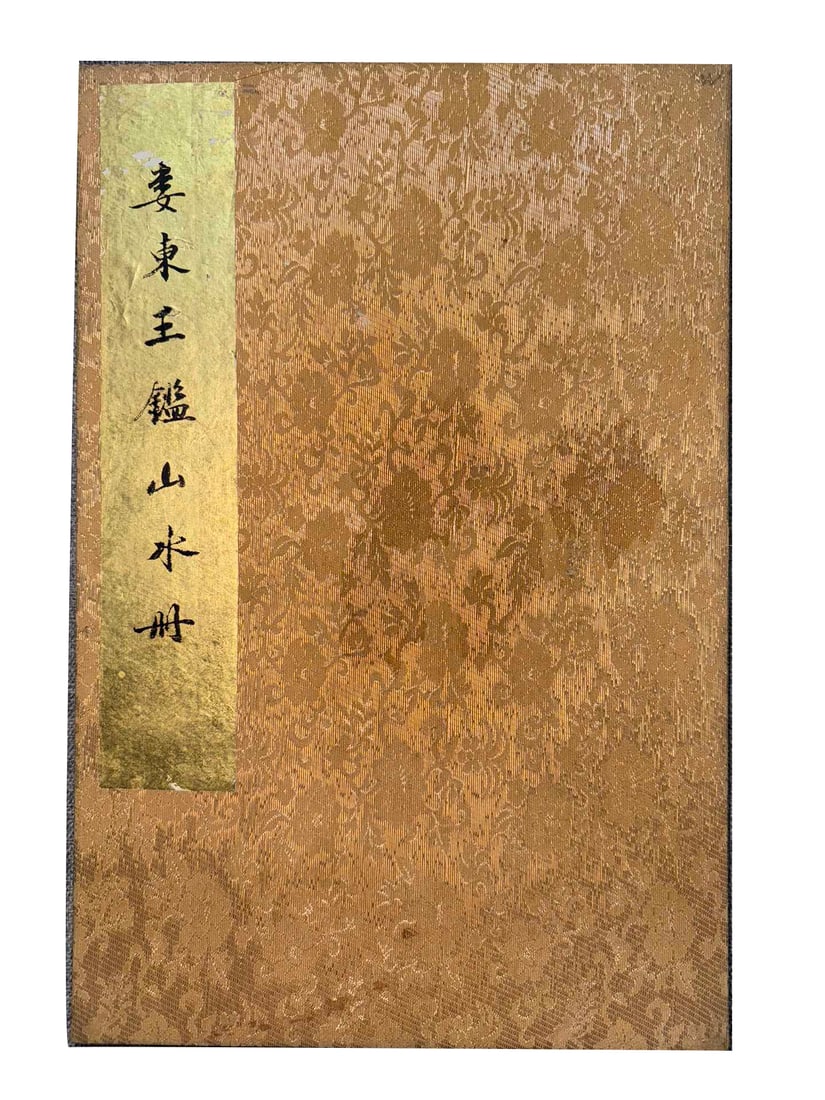 婁東王鑑山水册